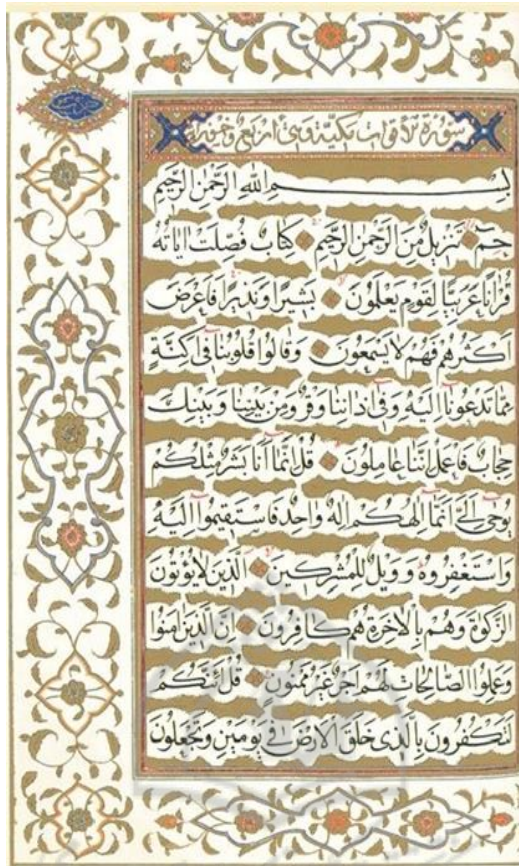 سورة مكية وهى اربع وخمسون
بِسْمِ اللهِ الرَّحْمٰنِ الرَّحِيمِ
حٰمٓ تَنْزِيلٌ مِنَ الرَّحْمٰنِ الرَّحِيمِ كِتَابٌ فُصِّلَتْ اٰيَاتُهُ
قُرْاٰنًا عَرَبِيًّا لِقَوْمٍ يَعْلَمُونَ بَشِيرًا وَنَذِيرًا فَاَعْرَضَ
اَكْثَرُهُمْ فَهُمْ لَا يَسْمَعُونَ وَقَالُوا قُلُوبُنَا فِى اَكِنَّةٍ
مِمَّا تَدْعُونَا اِلَيْهِ وَفِى اٰذَانِنَا وَقْرٌ وَمِنْ بَيْنِنَا وَبَيْنِكَ
حِجَابٌ فَاعْمَلْ اِنَّنَا عَامِلُونَ قُلْ اِنَّمَا اَنَا بَشَرٌ مِثْلُكُمْ
يُوحٰى اِلَىَّ اَنَّمَا اِلٰهُكُمْ اِلٰهٌ وَاحِدٌ فَاسْتَقِيمُوا اِلَيْهِ
وَاسْتَغْفِرُوهُ وَوَيْلٌ لِلْمُشْرِكِينَ الَّذِينَ لَا يُؤْتُونَ
الزَّكٰوةَ وَهُمْ بِالْاٰخِرَةِ هُمْ كَافِرُونَ اِنَّ الَّذِينَ اٰمَنُوا
وَعَمِلُوا الصَّالِحَاتِ لَهُمْ اَجْرٌ غَيْرُ مَمْنُونٍ قُلْ اَئِنَّكُمْ
لَتَكْفُرُونَ بِالَّذِى خَلَقَ الْاَرْضَ فِى يَوْمَيْنِ وَتَجْعَلُونَ